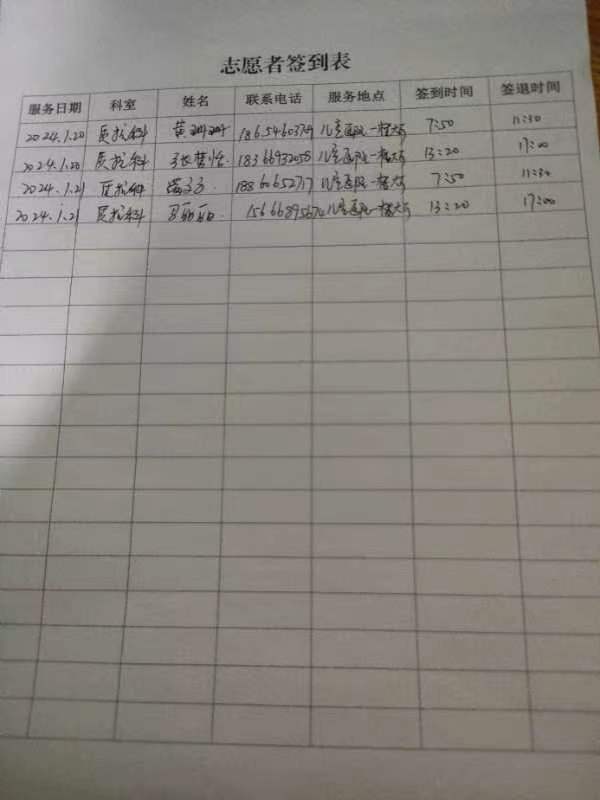 志愿者签到表
服务日期 科室 姓名 联系电话 服务地点 签到时间 签退时间
2024.1.20 质控科 黄 儿童医院一楼大厅 7:50 11:30
2024.1.20 质控科 张慧怡 18366932058 儿童医院一楼大厅 13:20 17:00
2024.1.21 质控科 18860652717 儿童医院一楼大厅 7:50 11:30
2024.1.21 质控科 儿童医院一楼大厅 13:20 17:00